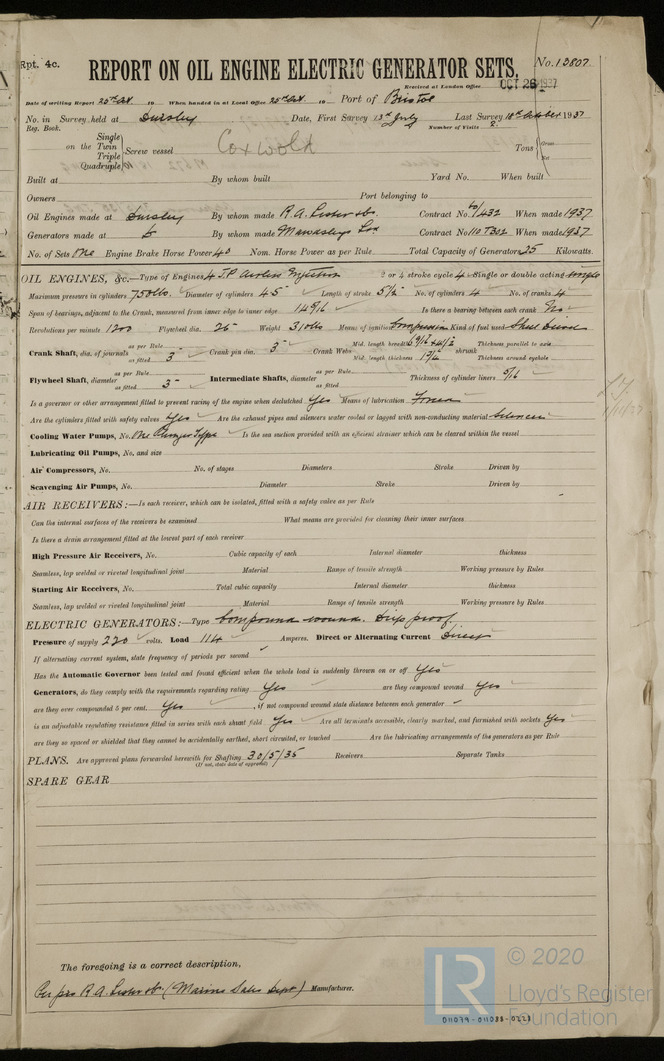 Rpt. 4c.
REPORT ON OIL ENGINE ELECTRIC GENERATOR SETS.
No. 13807
Received at London Office OCT 26 1937
Date of writing Report 25th Oct 19 When handed in at Local Office 25th Oct 19 Port of Bristol
No. in Survey held at Dursley Date, First Survey 13th July Last Survey 18th October 1937
Reg. Book. Number of Visits 2.
on the Single Twin Triple Quadruple Screw vessel Coxwold Tons Gross Net
Built at By whom built Yard No. When built
Owners Port belonging to
Oil Engines made at Dursley By whom made R.A. Lister & Co. Contract No. 432 When made 1937
Generators made at By whom made Mawdsleys Contract No. When made 1937
No. of Sets One Engine Brake Horse Power 40 Nom. Horse Power as per Rule Total Capacity of Generators 25 Kilowatts.
OIL ENGINES, &c.—Type of Engines 4 J.P. Airless Injection 2 or 4 stroke cycle 4 Single or double acting single
Maximum pressure in cylinders 750 lbs. Diameter of cylinders 4.5 Length of stroke 5½ No. of cylinders 4 No. of cranks 4
Span of bearings, adjacent to the Crank, measured from inner edge to inner edge Is there a bearing between each crank No
Revolutions per minute 1200 Flywheel dia. 26 Weight Means of ignition Compression Kind of fuel used
Crank Shaft, dia. of journals as per Rule as fitted 3" Crank pin dia. 3" Crank Webs Mid. length breadth Thickness parallel to axis
Mid. length thickness shrunk Thickness around eyehole
Flywheel Shaft, diameter as per Rule as fitted 3" Intermediate Shafts, diameter as per Rule as fitted Thickness of cylinder liners 5/16
Is a governor or other arrangement fitted to prevent racing of the engine when declutched Yes Means of lubrication Forced
Are the cylinders fitted with safety valves Yes Are the exhaust pipes and silencers water cooled or lagged with non-conducting material Silencer
Cooling Water Pumps, No. One Plunger Type Is the sea suction provided with an efficient strainer which can be cleared within the vessel
Lubricating Oil Pumps, No. and size
Air Compressors, No. No. of stages Diameters Stroke Driven by
Scavenging Air Pumps, No. Diameter Stroke Driven by
AIR RECEIVERS:—Is each receiver, which can be isolated, fitted with a safety valve as per Rule
Can the internal surfaces of the receivers be examined What means are provided for cleaning their inner surfaces
Is there a drain arrangement fitted at the lowest part of each receiver
High Pressure Air Receivers, No. Cubic capacity of each Internal diameter thickness
Seamless, lap welded or riveted longitudinal joint Material Range of tensile strength Working pressure by Rules
Starting Air Receivers, No. Total cubic capacity Internal diameter thickness
Seamless, lap welded or riveted longitudinal joint Material Range of tensile strength Working pressure by Rules
ELECTRIC GENERATORS:—Type Compound wound. Drip proof
Pressure of supply 220 volts. Load 114 Amperes. Direct or Alternating Current Direct
If alternating current system, state frequency of periods per second
Has the Automatic Governor been tested and found efficient when the whole load is suddenly thrown on or off Yes
Generators, do they comply with the requirements regarding rating Yes are they compound wound Yes
are they over compounded 5 per cent. Yes, if not compound wound state distance between each generator
is an adjustable regulating resistance fitted in series with each shunt field Yes Are all terminals accessible, clearly marked, and furnished with sockets Yes
are they so spaced or shielded that they cannot be accidentally earthed, short circuited, or touched Are the lubricating arrangements of the generators as per Rule
PLANS. Are approved plans forwarded herewith for Shafting 30/5/35 Receivers Separate Tanks
(If not, state date of approval)
SPARE GEAR
The foregoing is a correct description,
Per pro R.A. Lister & Co (Marine Sales Dept) Manufacturer.
LR © 2020
Lloyd's Register
Foundation
011079-011088-0228